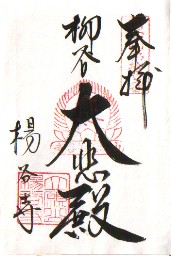 奉拝
柳谷
大悲殿
楊谷寺